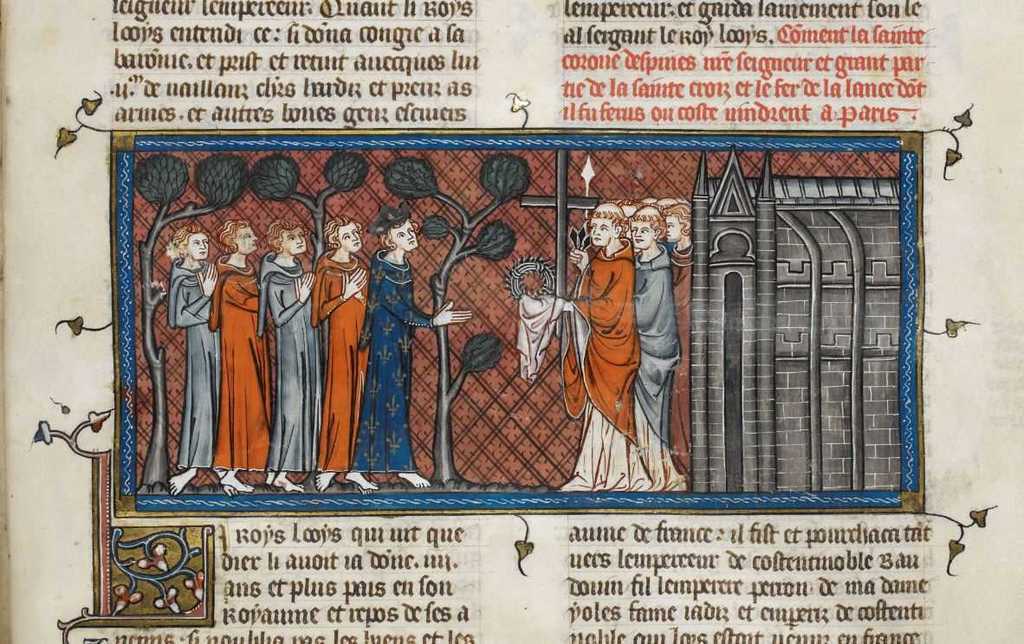 seigneur lempereeur. Quant li roys
looys entendi ce: si dona congie a sa
baronie. et prist et retint auecques lui
.ij.m de uaillanz chlrs hardiz et preuz as
armes. et autres bones genz escuiers
lempereeur, et garda sainement son le
al sergant le roy looys. Coment la sainte
corone despines nre seigneur et grant par
tie de la sainte croiz et le fer de la lance dot
il fu ferus ou coste uindrent a paris.
Li roys looys qui uit que
dier li auoit ia done. iiij.
ans et plus pais en son
Royaume et repos de ses a
nemis: si noublia pas les biens et les
aume de france: il fist et pourchaca tat
uers lempereeur de costentinoble Bau
douin fil lemperere perron. de ma dame
yoles fame iadiz et emperiz de costenti
noble qui lors estoit uenuz en france